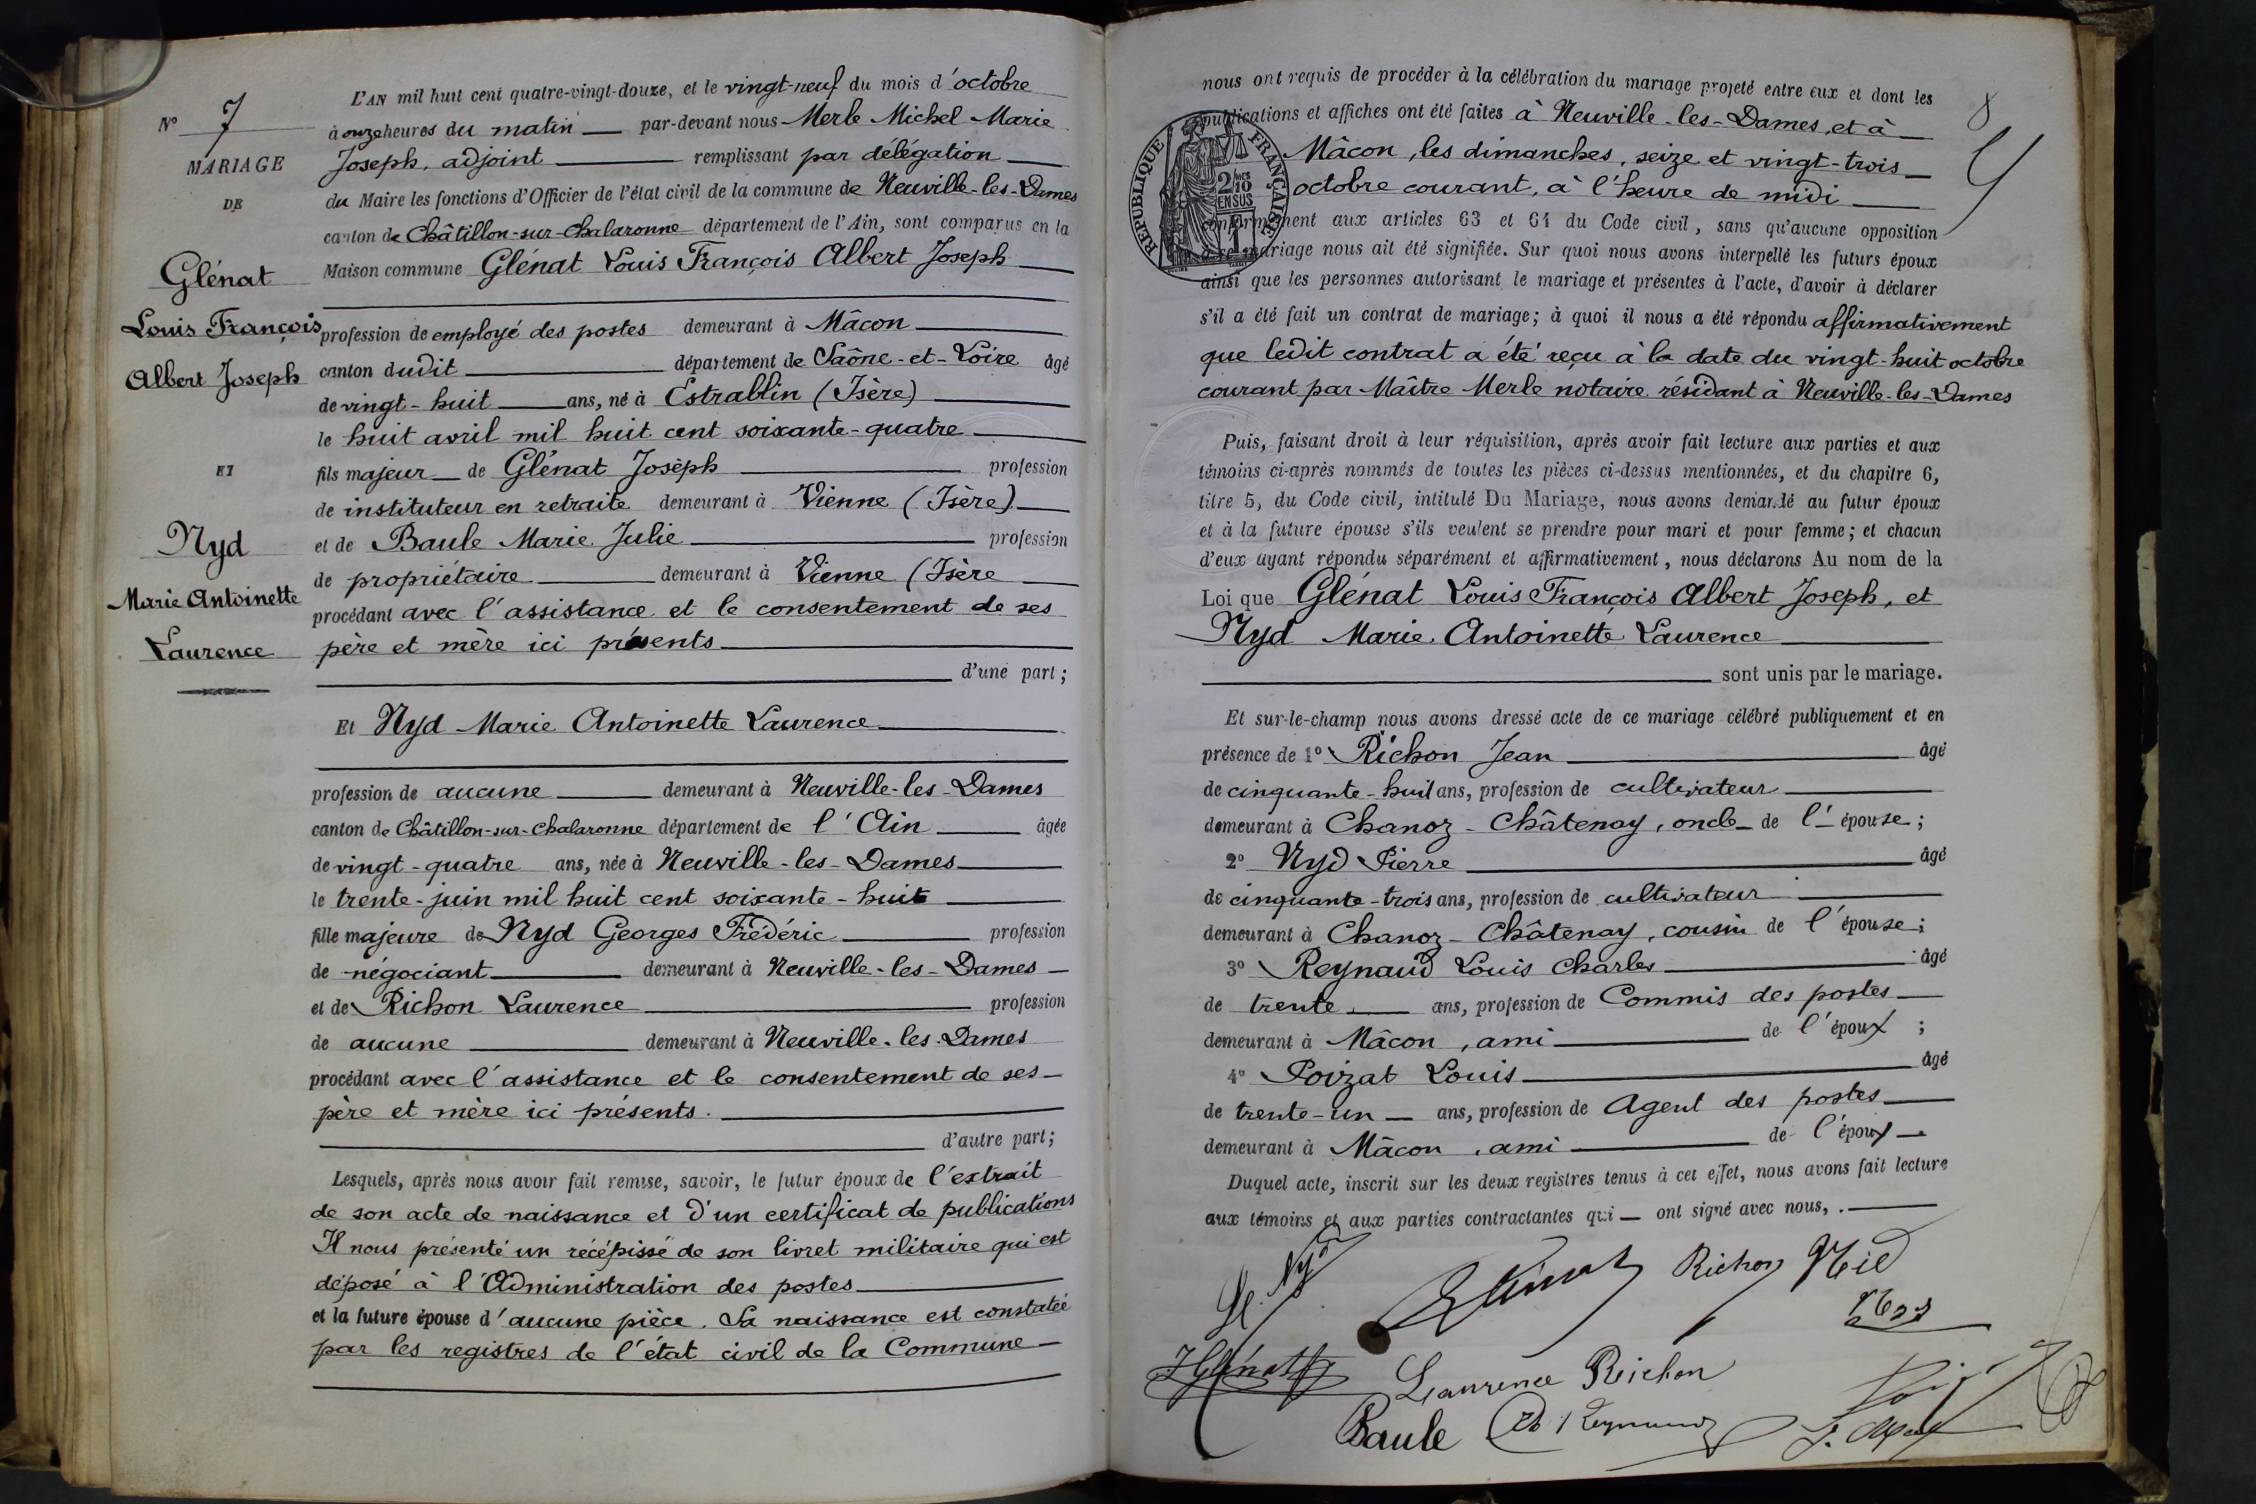 L'AN mil huit cent quatre-vingt-douze, et le vingt-neuf du mois d'octobre
N° 7
à onze heures du matin par-devant nous Merle Michel Marie
MARIAGE
Joseph, adjoint remplissant par délégation
DE
du Maire les fonctions d'Officier de l'état civil de la commune de Neuville-les-Dames
canton de Châtillon-sur-Chalaronne département de l'Ain, sont comparus en la
Glénat
Maison commune Glénat Louis François Albert Joseph
Louis François
profession de employé des postes demeurant à Mâcon
Albert Joseph
canton dudit département de Saône-et-Loire âgé
de vingt-huit ans, né à Estrablin (Isère)
le huit avril mil huit cent soixante-quatre
ET
fils majeur de Glénat Joséph profession
de instituteur en retraite demeurant à Vienne (Isère)
Nyd
et de Baule Marie Julie profession
de propriétaire demeurant à Vienne (Isère
Marie Antoinette
procédant avec l'assistance et le consentement de ses
Laurence
père et mère ici présents
d'une part;
Et Nyd Marie Antoinette Laurence
profession de aucune demeurant à Neuville-les-Dames
canton de Châtillon-sur-Chalaronne département de l'Ain âgée
de vingt-quatre ans, née à Neuville-les-Dames
le trente-juin mil huit cent soixante-huit
fille majeure de Nyd Georges Frédéric profession
de négociant demeurant à Neuville-les-Dames
et de Richon Laurence profession
de aucune demeurant à Neuville-les-Dames
procédant avec l'assistance et le consentement de ses
père et mère ici présents.
d'autre part;
Lesquels, après nous avoir fait remise, savoir, le futur époux de l'extrait
de son acte de naissance et d'un certificat de publications
Il nous présenté un récépissé de son livret militaire qui est
déposé à l'Administration des postes
et la future épouse d'aucune pièce. Sa naissance est constatée
par les registres de l'état civil de la Commune
nous ont requis de procéder à la célébration du mariage projeté entre eux et dont les
8
publications et affiches ont été faites à Neuville-les-Dames, et à
Mâcon, les dimanches, seize et vingt-trois
octobre courant, à l'heure de midi
RÉPUBLIQUE FRANÇAISE
2/10 EN SUS
conformément aux articles 63 et 64 du Code civil, sans qu'aucune opposition
à ce mariage nous ait été signifiée. Sur quoi nous avons interpellé les futurs époux
ainsi que les personnes autorisant le mariage et présentes à l'acte, d'avoir à déclarer
s'il a été fait un contrat de mariage; à quoi il nous a été répondu affirmativement
que ledit contrat a été reçu à la date du vingt-huit octobre
courant par Maître Merle notaire résidant à Neuville-les-Dames
Puis, faisant droit à leur réquisition, après avoir fait lecture aux parties et aux
témoins ci-après nommés de toutes les pièces ci-dessus mentionnées, et du chapitre 6,
titre 5, du Code civil, intitulé Du Mariage, nous avons demandé au futur époux
et à la future épouse s'ils veulent se prendre pour mari et pour femme; et chacun
d'eux ayant répondu séparément et affirmativement, nous déclarons Au nom de la
Loi que Glénat Louis François Albert Joseph, et
Nyd Marie Antoinette Laurence
sont unis par le mariage.
Et sur-le-champ nous avons dressé acte de ce mariage célébré publiquement et en
présence de 1° Richon Jean âgé
de cinquante-huit ans, profession de cultivateur
demeurant à Chanoz-Châtenay, oncle de l'épouse;
2° Nyd Pierre âgé
de cinquante-trois ans, profession de cultivateur
demeurant à Chanoz-Châtenay, cousin de l'épouse;
3° Reynaud Louis Charles âgé
de trente ans, profession de Commis des postes
demeurant à Mâcon, ami de l'époux;
4° Poizat Louis âgé
de trente-un ans, profession de Agent des postes
demeurant à Mâcon, ami de l'époux
Duquel acte, inscrit sur les deux registres tenus à cet effet, nous avons fait lecture
aux témoins et aux parties contractantes qui ont signé avec nous, .
Richon Nid
Glénat
Laurence Richon
Baule